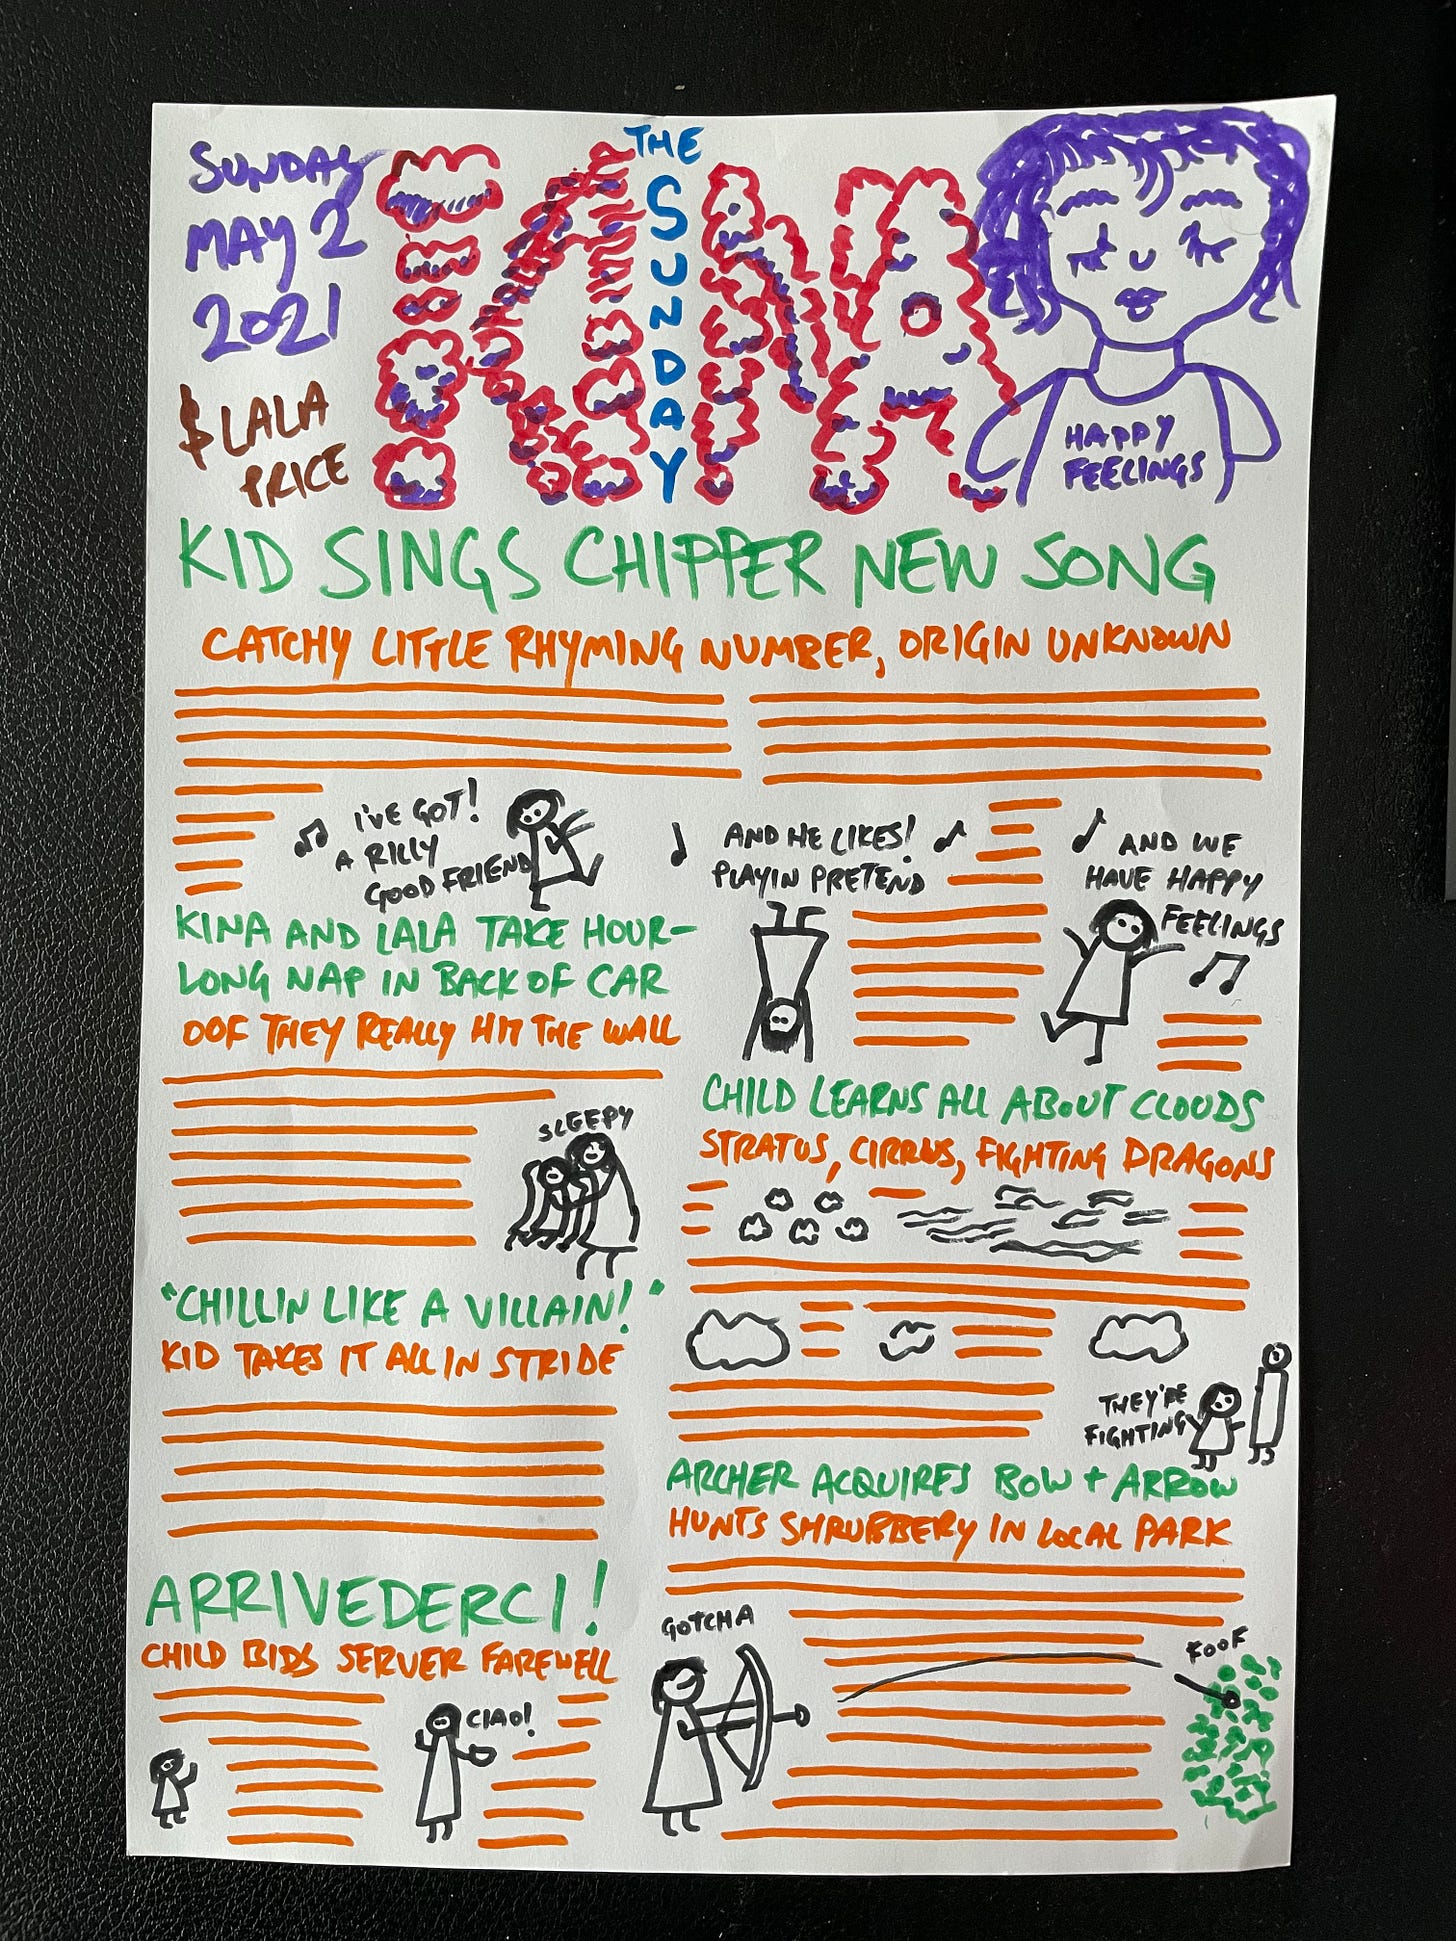 SUNDAY
MAY 2
2021
$ LALA
PRICE
THE
SUNDAY
KINA
HAPPY
FEELINGS
KID SINGS CHIPPER NEW SONG
CATCHY LITTLE RHYMING NUMBER, ORIGIN UNKNOWN
I'VE GOT!
A RILLY
GOOD FRIEND
AND HE LIKES!
PLAYIN PRETEND
AND WE
HAVE HAPPY
FEELINGS
KINA AND LALA TAKE HOUR-
LONG NAP IN BACK OF CAR
OOF THEY REALLY HIT THE WALL
SLEEPY
CHILD LEARNS ALL ABOUT CLOUDS
STRATUS, CIRRUS, FIGHTING DRAGONS
THEY'RE
FIGHTING
"CHILLIN LIKE A VILLAIN!"
KID TAKES IT ALL IN STRIDE
ARCHER ACQUIRES BOW + ARROW
HUNTS SHRUBBERY IN LOCAL PARK
GOTCHA
FOOF
ARRIVEDERCI!
CHILD BIDS SERVER FAREWELL
CIAO!